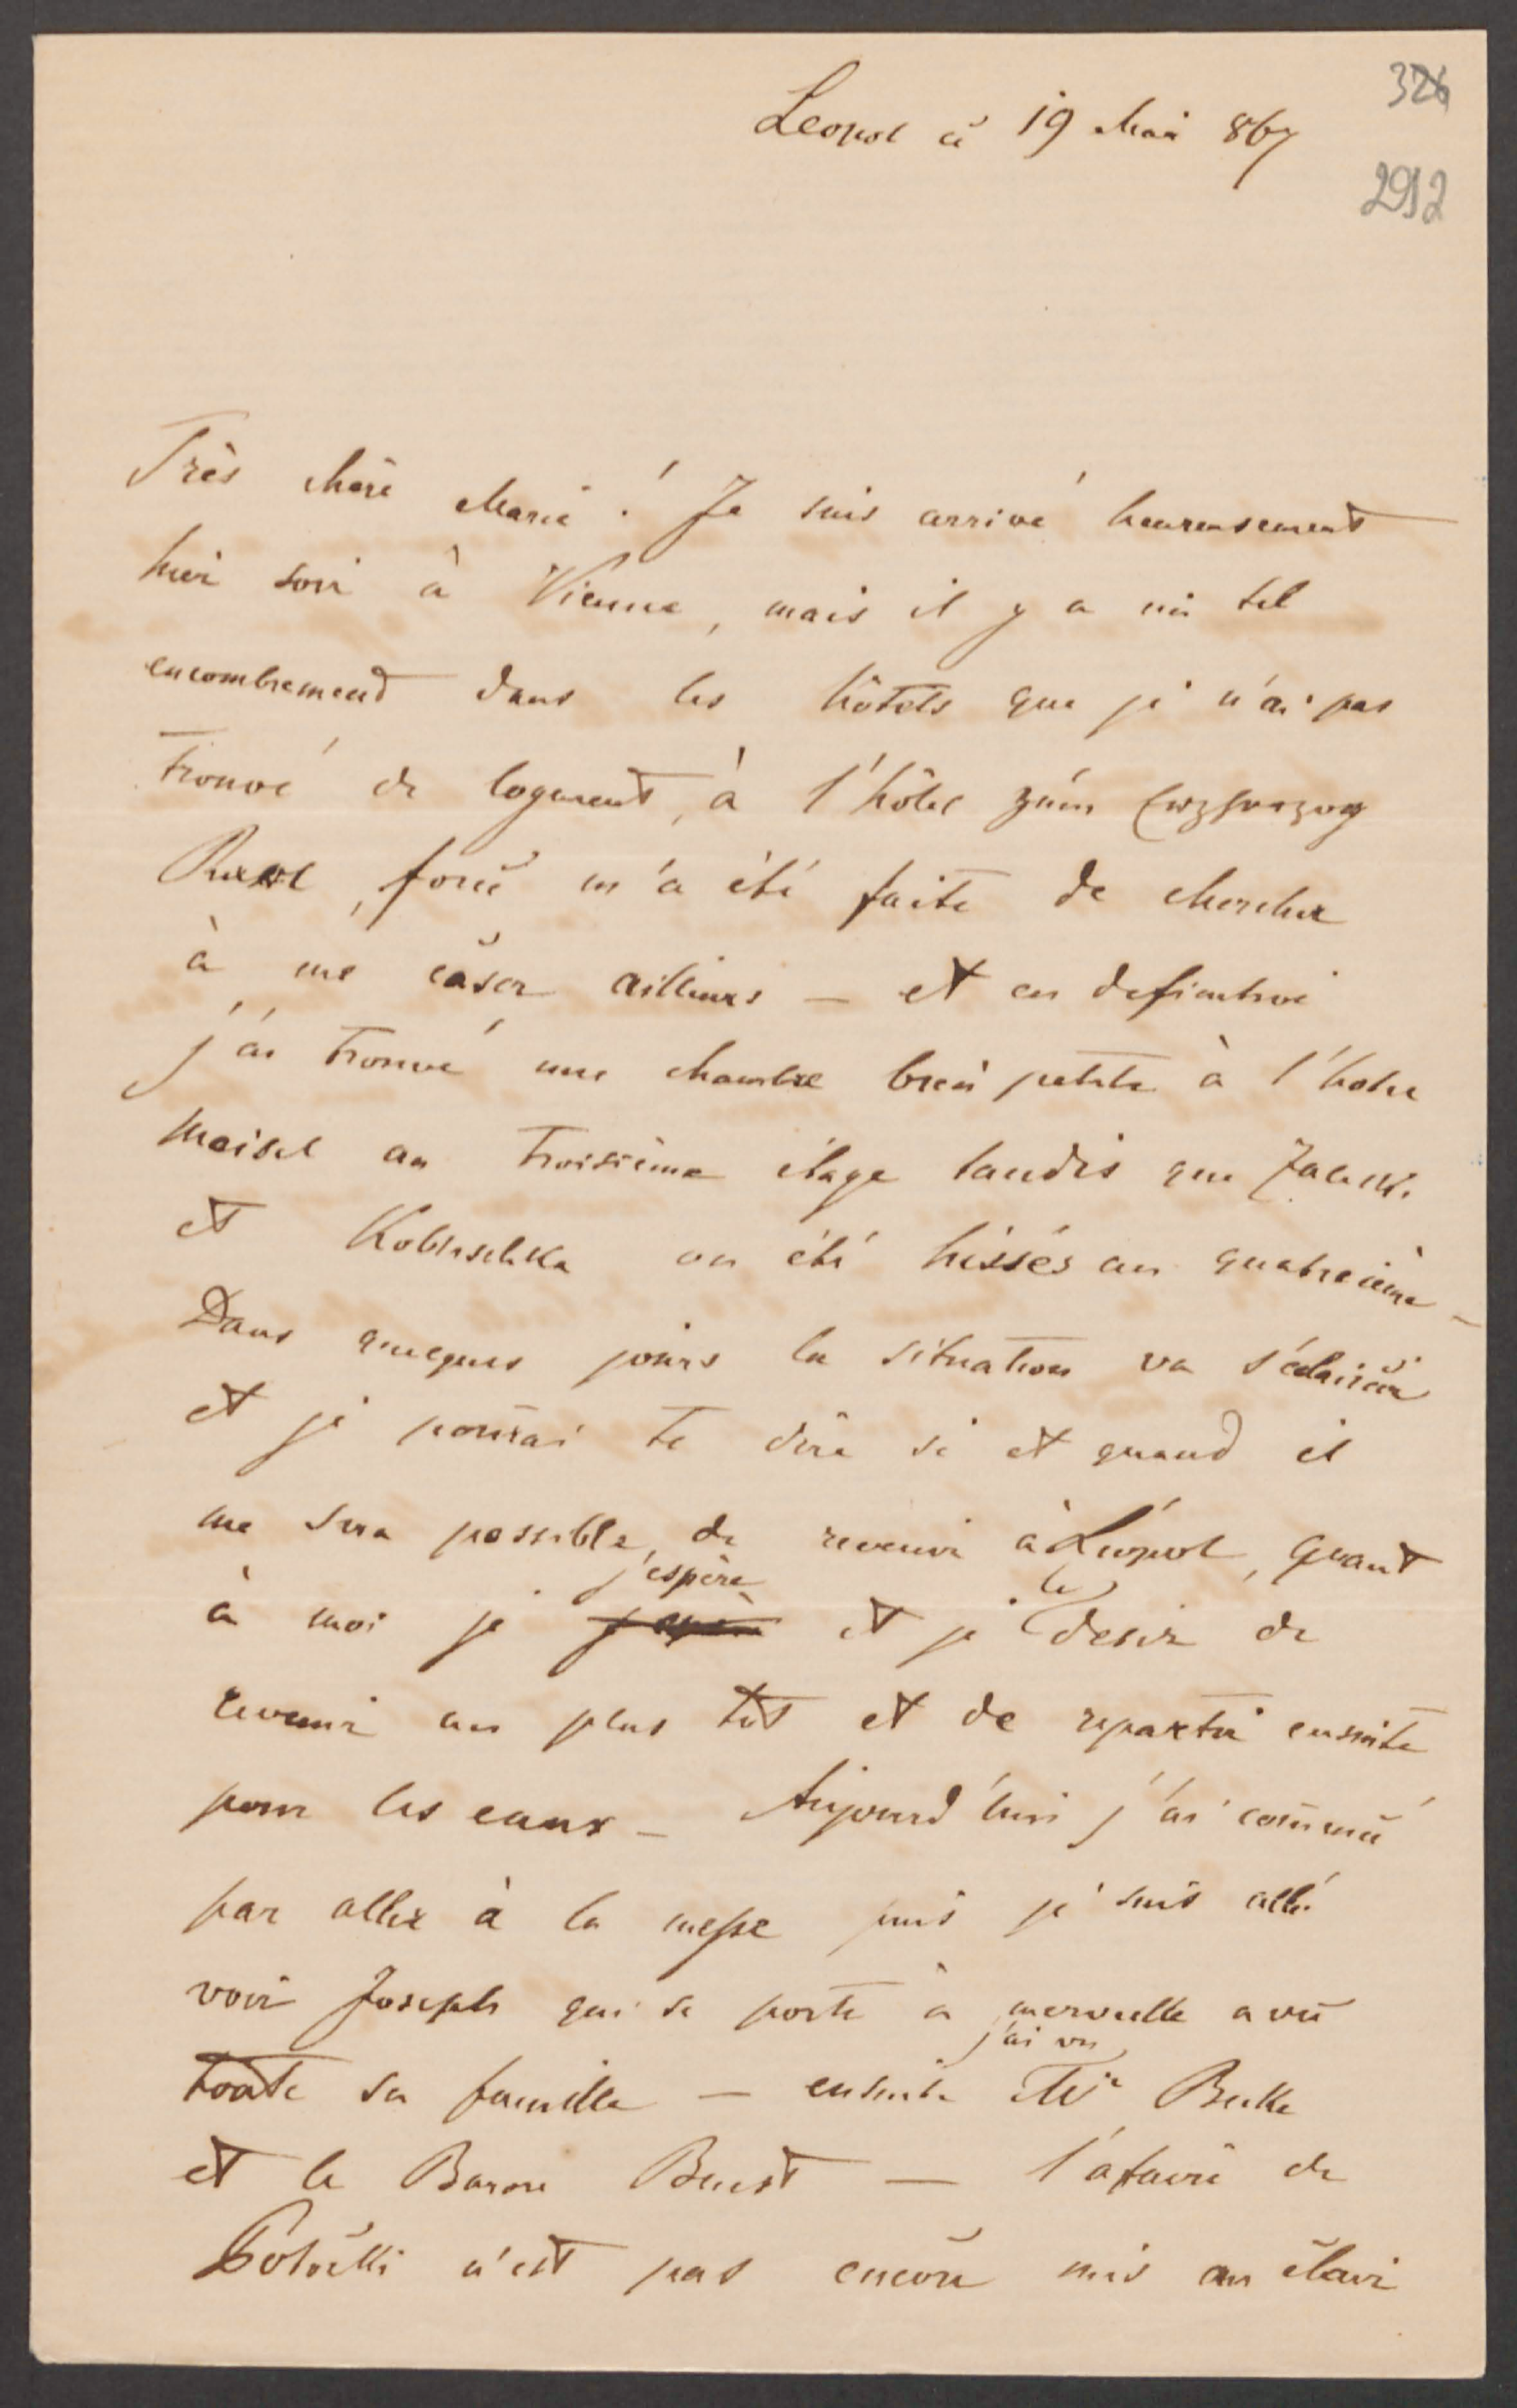 326
Leopol ce 19 Mai 867
2912
Très chère Marie! Je suis arrivé heureusement
hier soir à Vienne, mais il y a un tel
encombremend dans les hôtels que je n'ai pas
trouvé de logement, à l'hôtel zum Erzherzog
Karl, force m'a été faite de chercher
à me caser ailleurs — et en definitive
j'ai trouvé une chambre bien petite à l'hotel
Meisel au troisième étage tandis que Zaleski
et Kobuschka on été hissés au quatreième –
Dans quelques jours la situation va s'éclaircir
et je pourrai te dire si et quand il
me sera possible, de revenir à Léopol, quant
à moi je j'espère et je le desir de
revenir au plus tôt et de repartir ensuite
pour les eaux – Aujourd'hui j'ai commencé
par aller à la messe puis je suis allé
voir Joseph qui se porte à merveille avec
toute sa famille — ensuite j'ai vu Mr Beke
et le Baron Beust — l'afaire de
Gołuchowski n'est pas encore mis au clair